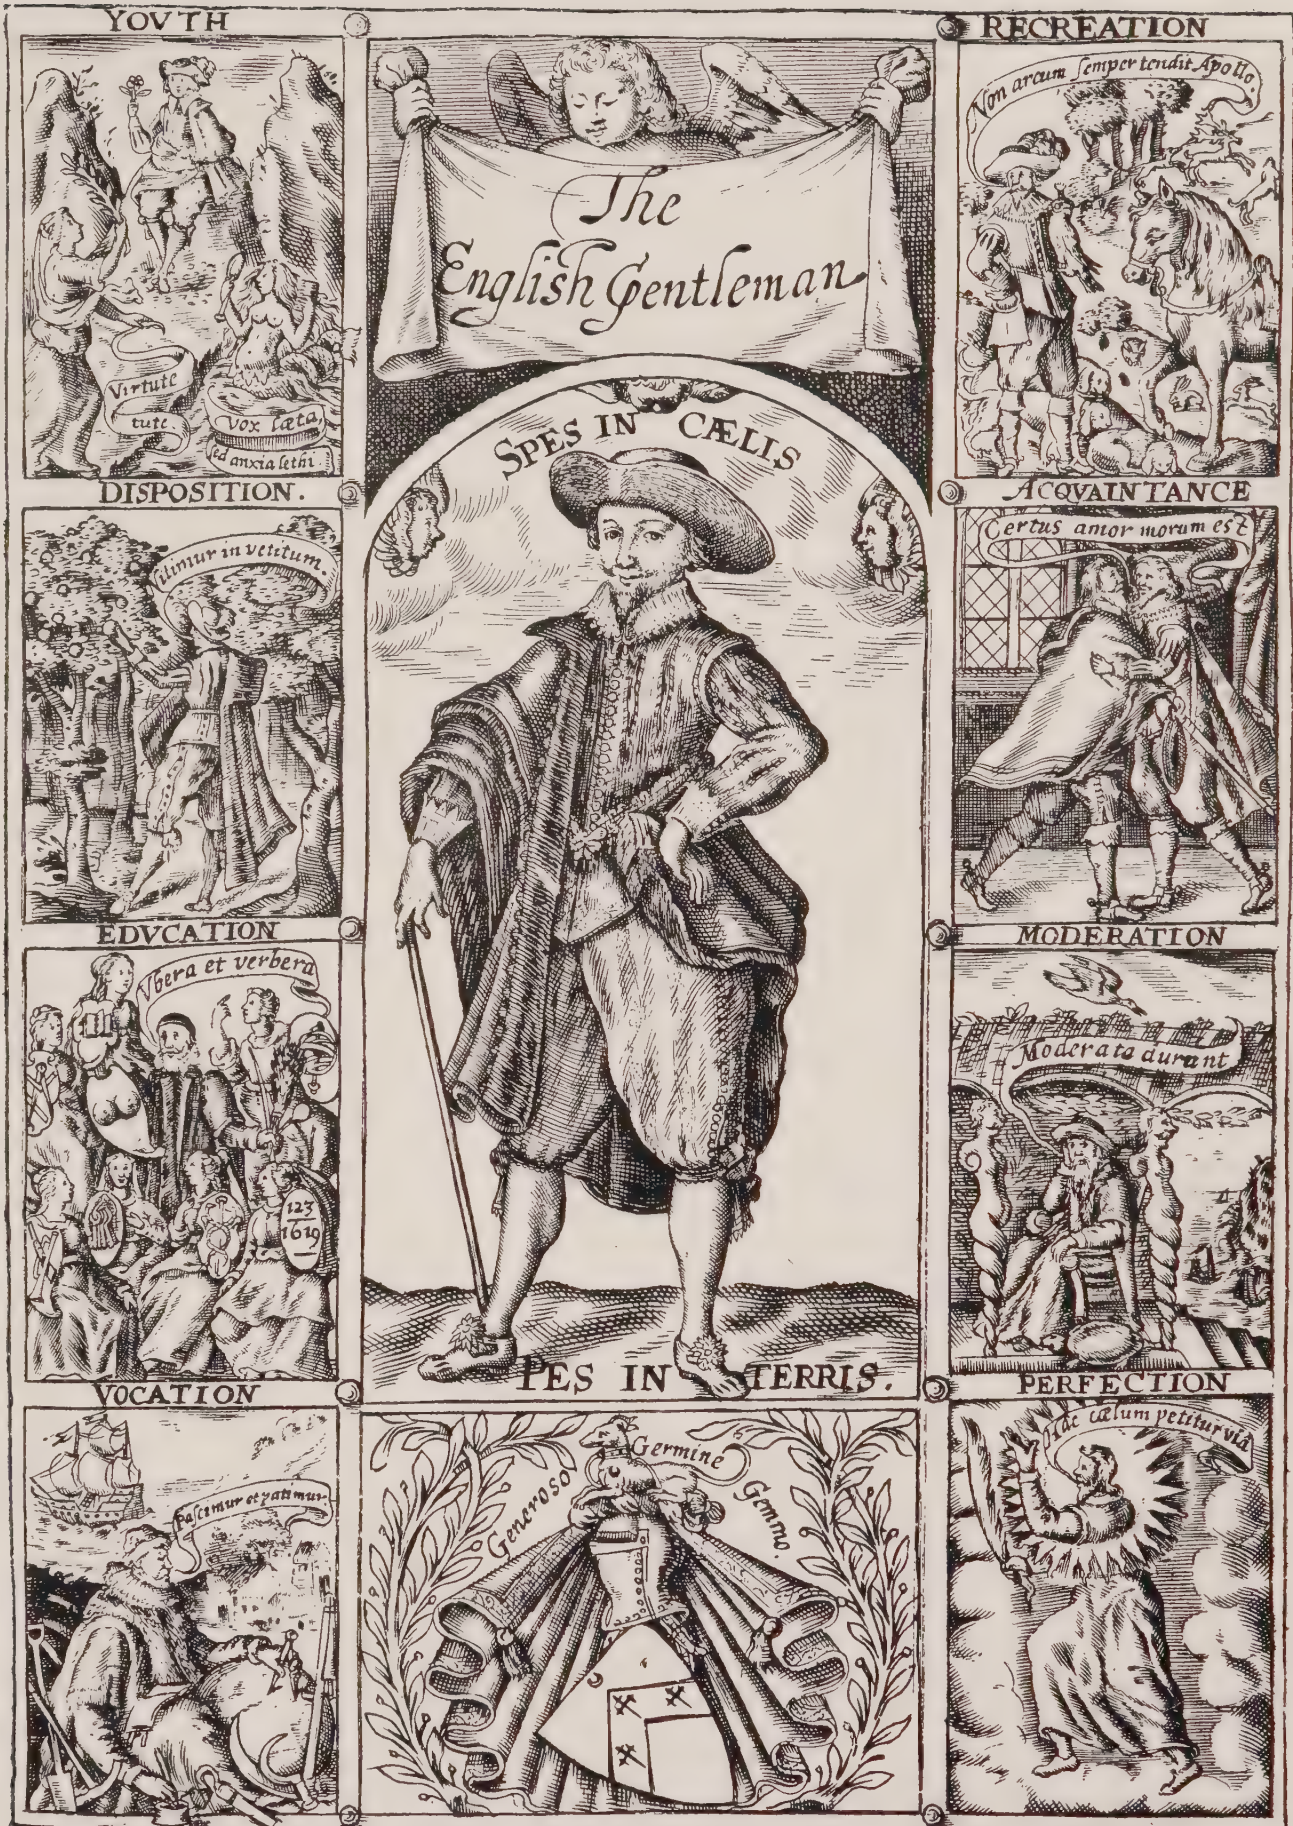 YOVTH
Virtute
tute.
vox læta
sed anxia lethi
DISPOSITION.
nitimur in vetitum
EDVCATION
Vbera et verbera
123
1619
VOCATION
Pascimur et patimur.
The
English Gentleman
SPES IN CÆLIS
PES IN TERRIS.
Generoso Germine Gemmo.
RECREATION
Non arcum semper tendit Apollo.
ACQVAINTANCE
Certus amor morum est
MODERATION
Moderata durant
PERFECTION
Hac cælum petitur viâ